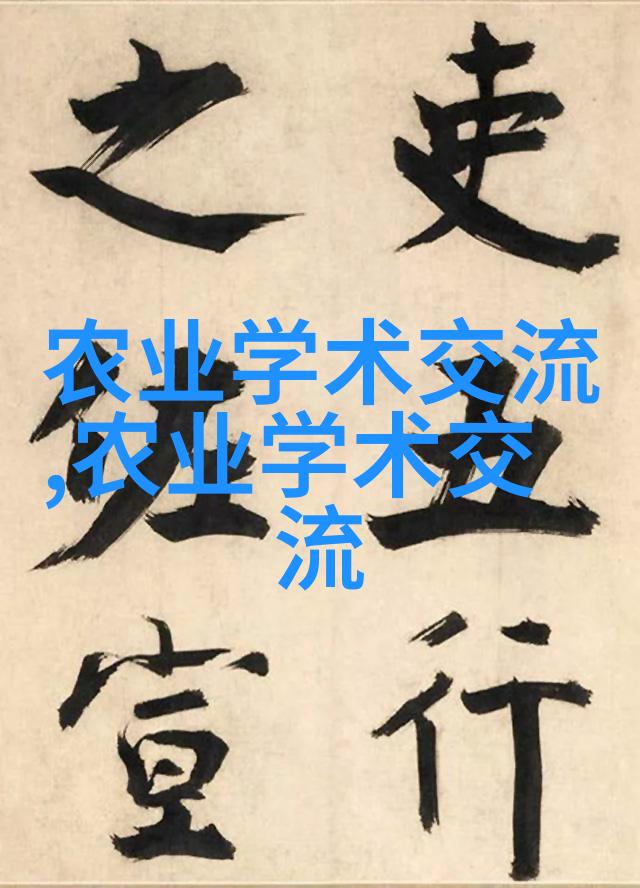 农业学术交流
,农业学术交
流
吏五行
之宣